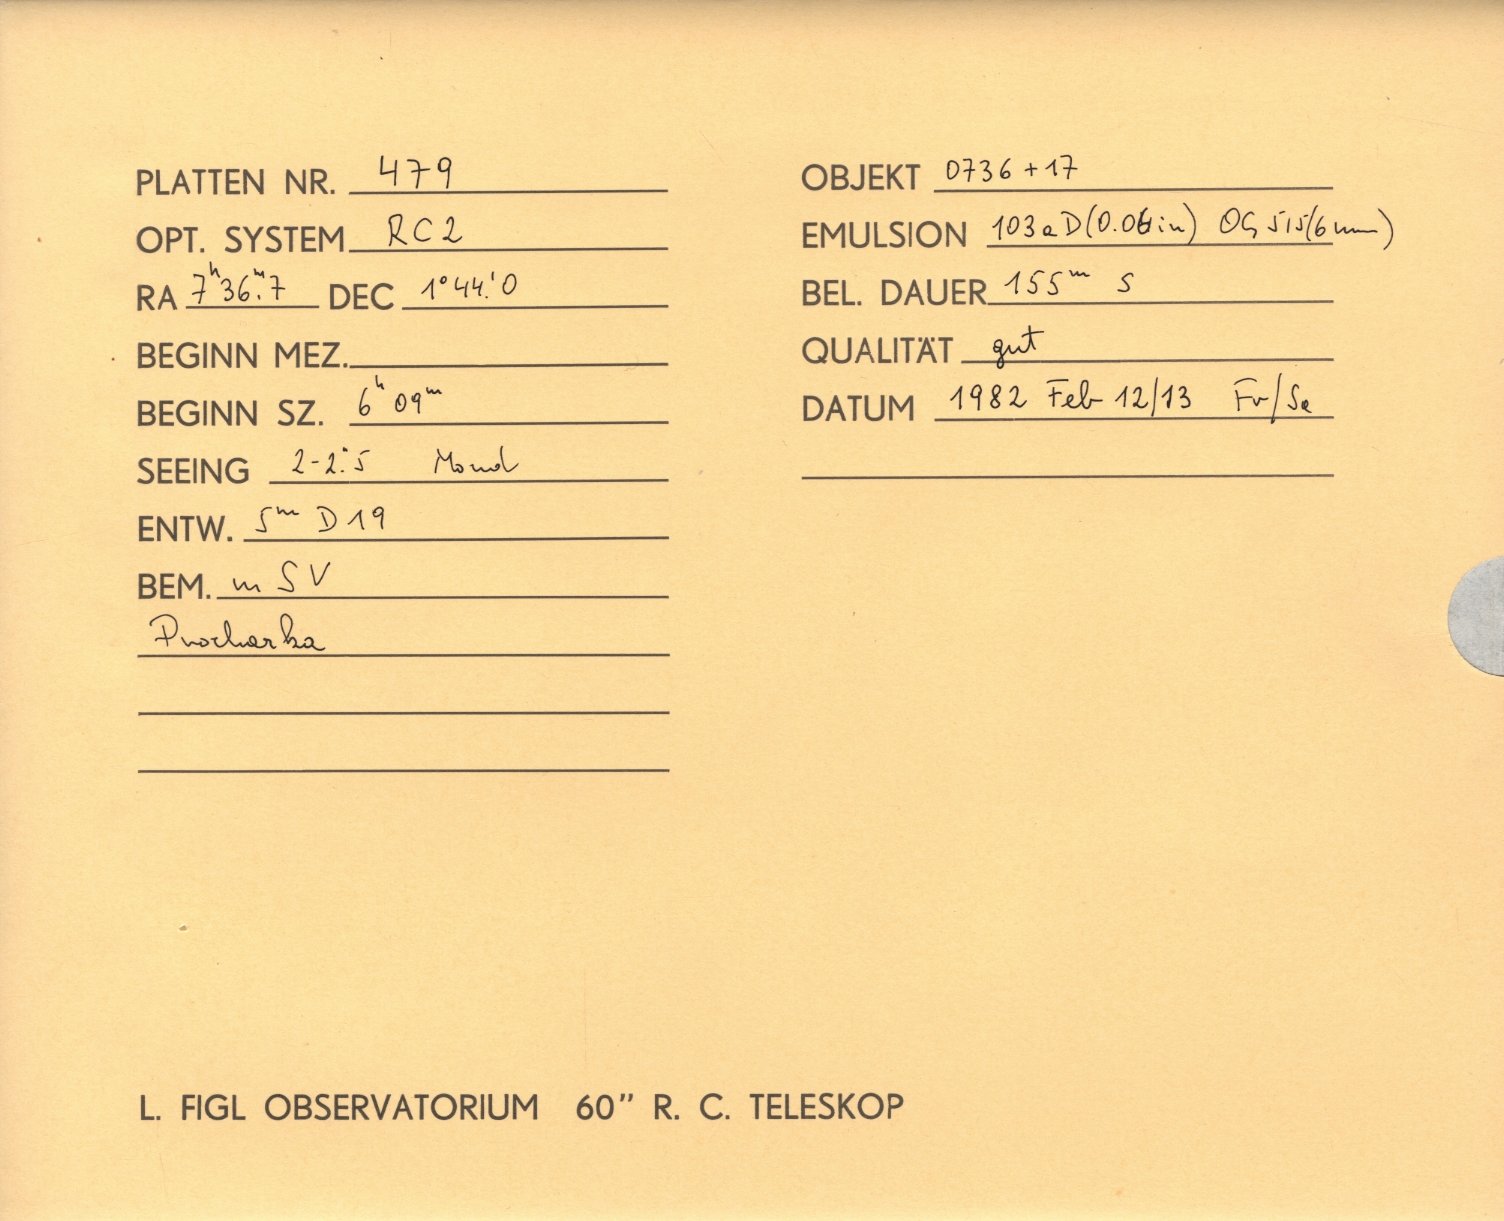 PLATTEN NR. 479
OPT. SYSTEM RC2
RA 7ʰ36ᵐ.7 DEC 1°44.'0
BEGINN MEZ.
BEGINN SZ. 6ʰ 09ᵐ
SEEING 2-2".5 Mond
ENTW. 5ᵐ D19
BEM. m SV
Prochazka
OBJEKT 0736+17
EMULSION 103aD(0.06in) OG515(6mm)
BEL. DAUER 155ᵐ s
QUALITÄT gut
DATUM 1982 Feb 12/13 Fr/Sa
L. FIGL OBSERVATORIUM 60" R. C. TELESKOP